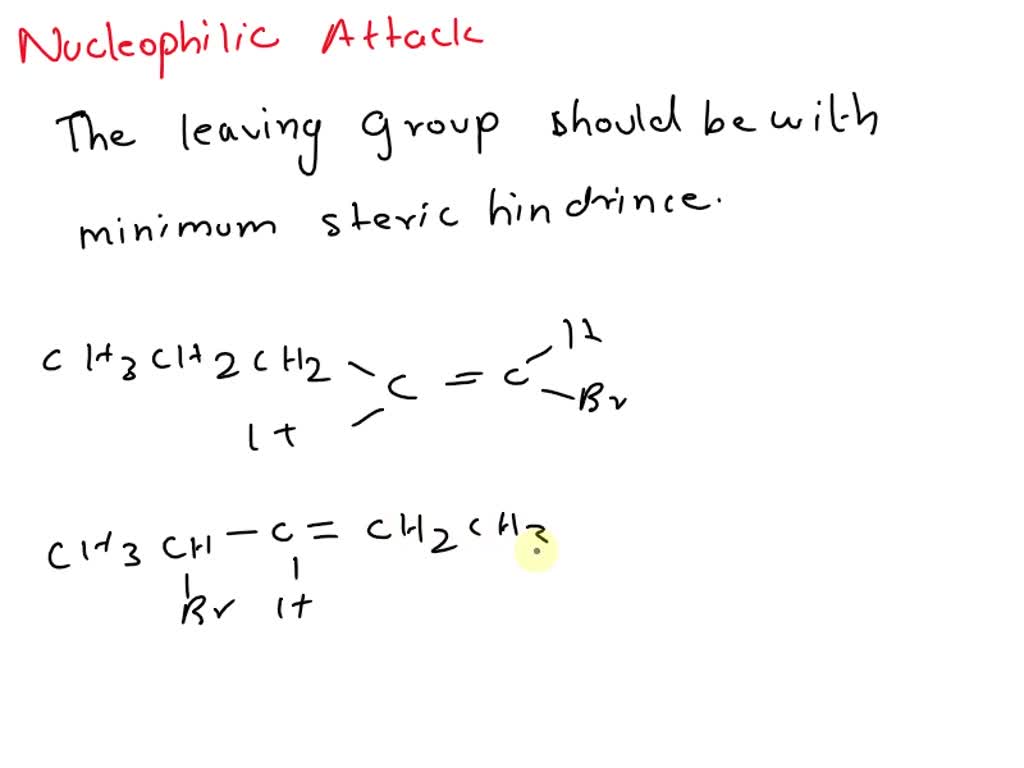 Nucleophilic Attack
The leaving group should be with
minimum steric hindrince.
H
CH3CH2CH2 C = C
Br
H
CH3 CH - C = CH2CH3
Br H